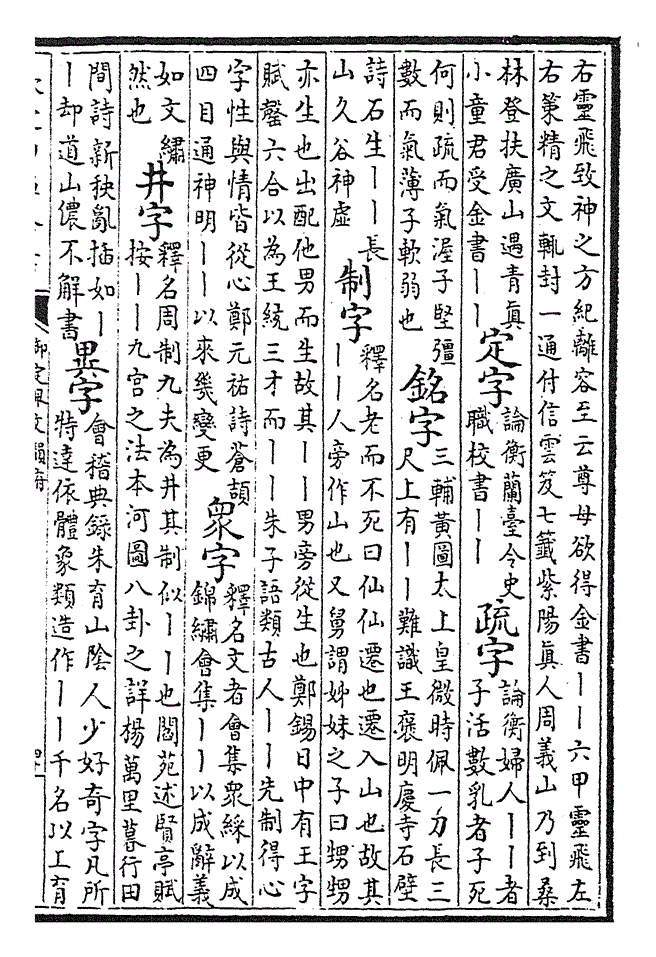 右靈飛致神之方紀離容至云尊母欲得金書丨丨六甲靈飛左
右策精之文輒封一通付信雲笈七籖紫陽真人周義山乃到桑
林登扶廣山遇青真
小童君受金書丨丨
定字
論衡蘭臺令史
職校書丨丨
疏字
論衡婦人丨丨者
子活數乳者子死
何則疏而氣渥子堅彊
數而氣薄子軟弱也
銘字
三輔黃圖太上皇微時佩一刀長三
尺上有丨丨難識王褒明慶寺石壁
詩石生丨丨長
山久谷神虛
制字
釋名老而不死曰仙仙遷也遷入山也故其
丨丨人旁作山也又舅謂姊妹之子曰甥甥
亦生也出配他男而生故其丨丨男旁從生也鄭錫日中有王字
賦罄六合以為王統三才而丨丨朱子語類古人丨丨先制得心
字性與情皆從心鄭元祐詩蒼頡
四目通神明丨丨以來幾變更
衆字
釋名文者會集衆綵以成
錦繡會集丨丨以成辭義
如文繡
然也
井字
釋名周制九夫為井其制似丨丨也閻苑述賢亭賦
按丨丨九宮之法本河圖八卦之詳楊萬里暮行田
間詩新秧亂插如丨
丨却道山儂不解書
異字
會稽典録朱育山陰人少好奇字凡所
特達依體象類造作丨丨千名以上育